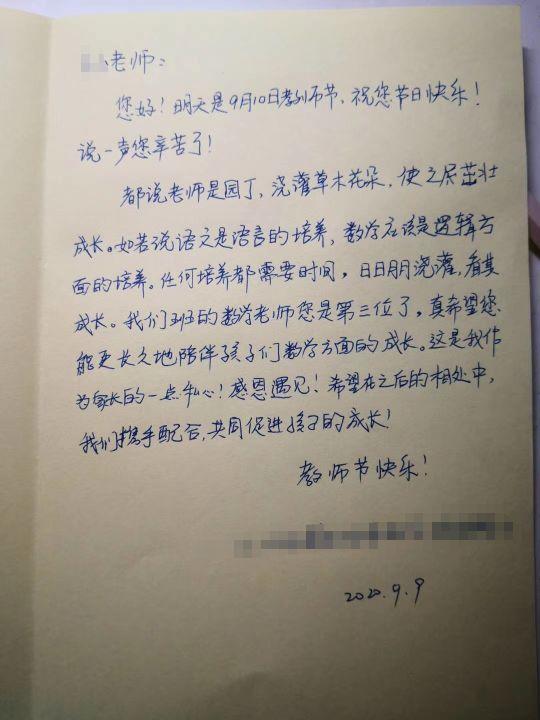 老师：
您好！明天是9月10日教师节，祝您节日快乐！
说一声您辛苦了！
都说老师是园丁，浇灌草木花朵，使之茁壮
成长。如若说语文是语言的培养，数学应该是逻辑方
面的培养。任何培养都需要时间，日日月月浇灌，看其
成长。我们3班的数学老师您是第三位了，真希望您
能更长久地陪伴孩子们数学方面的成长。这是我作
为家长的一点私心！感恩遇见！希望在之后的相处中，
我们携手配合，共同促进孩子的成长！
教师节快乐！
2020.9.9